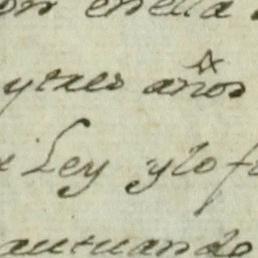 en ella
y tres años
Ley y lo f
actuando